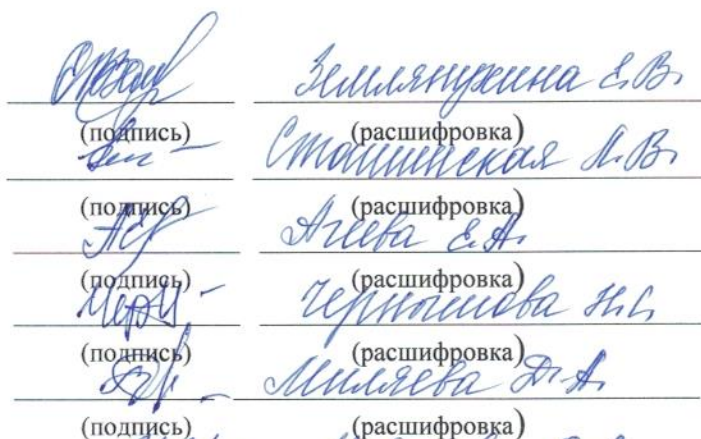 Землянухина Е.В.
(подпись) (расшифровка)
Сташинская Л.В.
(подпись) (расшифровка)
Агеева Е.А.
(подпись) (расшифровка)
Чернышова Н.С.
(подпись) (расшифровка)
Миляева Д.А.
(подпись) (расшифровка)